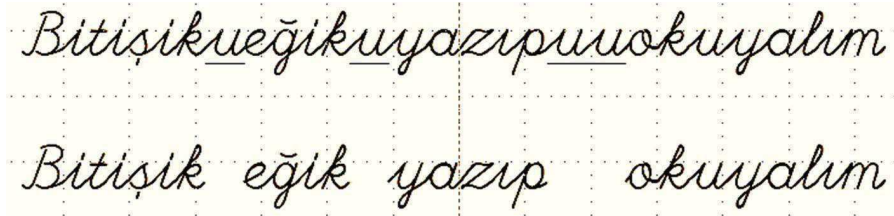 Bitişikueğikuyazıpuuokuyalım
Bitişik eğik yazıp okuyalım